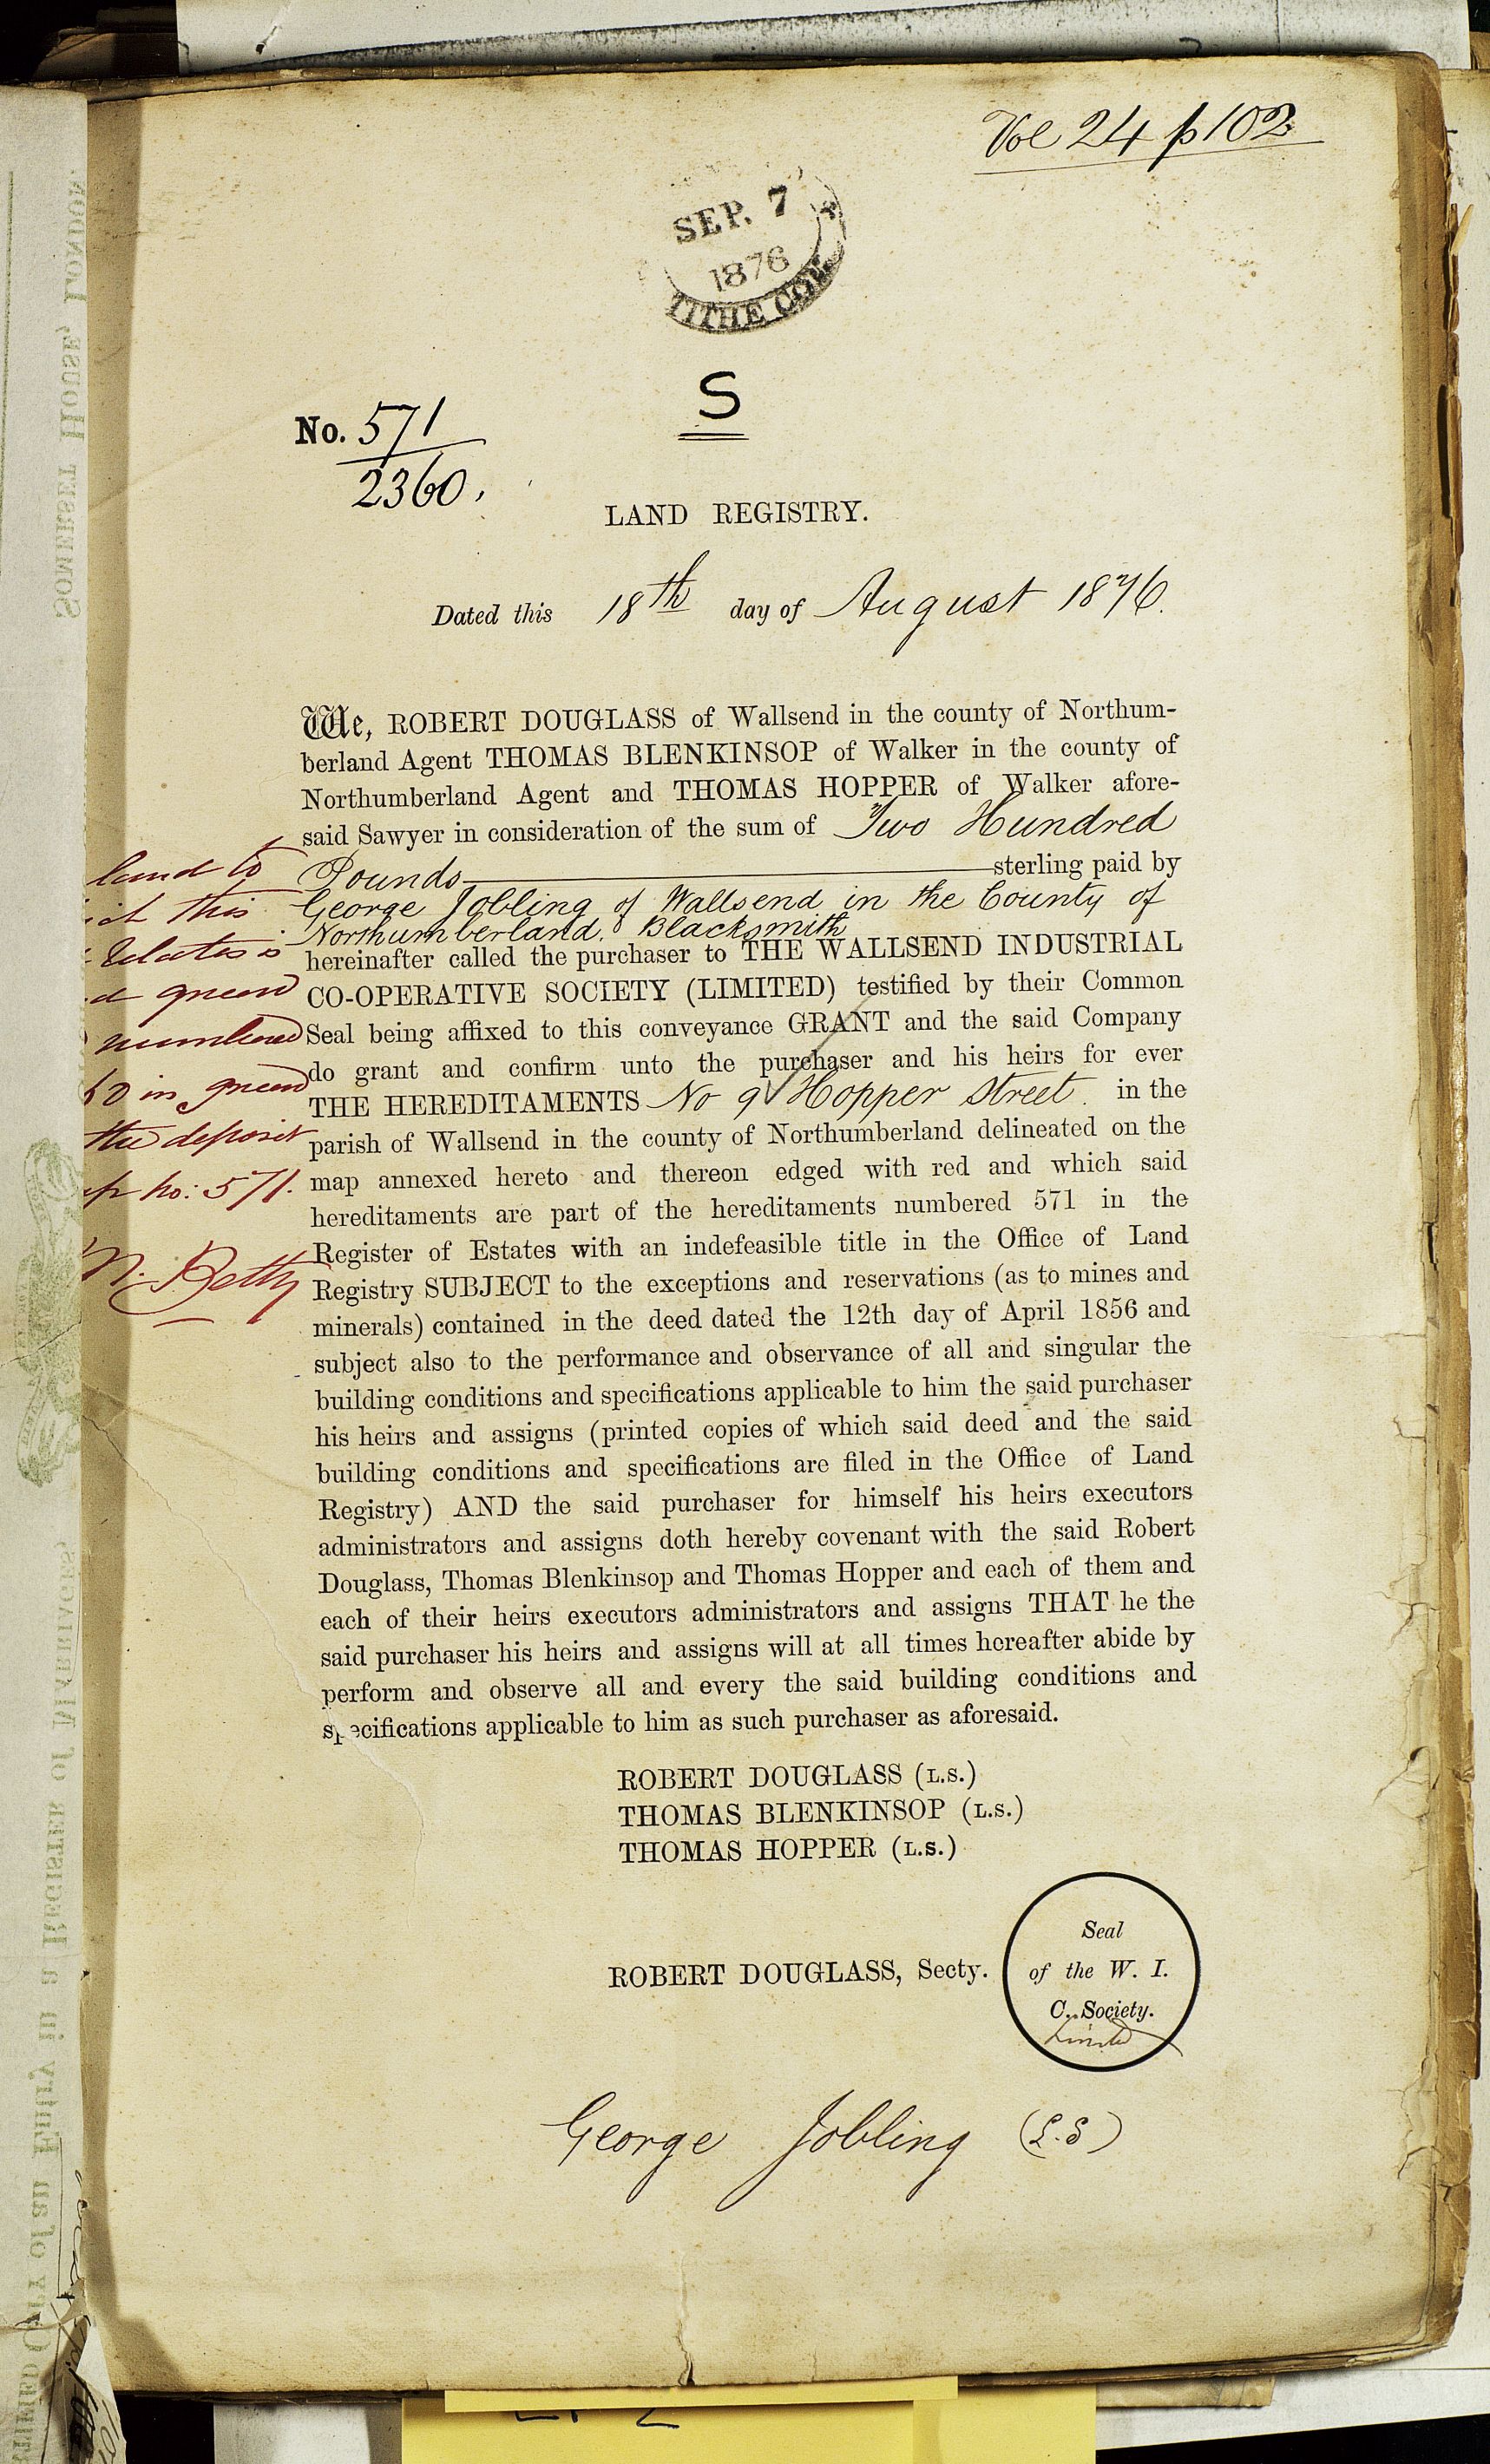 Vol 24 p 102
SEP. 7
1876
TITHE COM
S
No. 571
2360.
LAND REGISTRY.
Dated this 18th day of August 1876.
We, ROBERT DOUGLASS of Wallsend in the county of Northum-
berland Agent THOMAS BLENKINSOP of Walker in the county of
Northumberland Agent and THOMAS HOPPER of Walker afore-
said Sawyer in consideration of the sum of Two Hundred
Pounds sterling paid by
George Jobling of Wallsend in the County of
Northumberland. Blacksmith
hereinafter called the purchaser to THE WALLSEND INDUSTRIAL
CO-OPERATIVE SOCIETY (LIMITED) testified by their Common
Seal being affixed to this conveyance GRANT and the said Company
do grant and confirm unto the purchaser and his heirs for ever
THE HEREDITAMENTS No 9 Hopper Street. in the
parish of Wallsend in the county of Northumberland delineated on the
map annexed hereto and thereon edged with red and which said
hereditaments are part of the hereditaments numbered 571 in the
Register of Estates with an indefeasible title in the Office of Land
Registry SUBJECT to the exceptions and reservations (as to mines and
minerals) contained in the deed dated the 12th day of April 1856 and
subject also to the performance and observance of all and singular the
building conditions and specifications applicable to him the said purchaser
his heirs and assigns (printed copies of which said deed and the said
building conditions and specifications are filed in the Office of Land
Registry) AND the said purchaser for himself his heirs executors
administrators and assigns doth hereby covenant with the said Robert
Douglass, Thomas Blenkinsop and Thomas Hopper and each of them and
each of their heirs executors administrators and assigns THAT he the
said purchaser his heirs and assigns will at all times hereafter abide by
perform and observe all and every the said building conditions and
specifications applicable to him as such purchaser as aforesaid.
land to
this
relates is
green
numbered
in green
the deposit
no: 571.
N. Betty
ROBERT DOUGLASS (L.S.)
THOMAS BLENKINSOP (L.S.)
THOMAS HOPPER (L.S.)
ROBERT DOUGLASS, Secty.
Seal
of the W. I.
C. Society.
Limited
George Jobling (L.S)
SOMERSET HOUSE, LONDON.
CERTIFIED COPY of an Entry in a REGISTER of MARRIAGES,